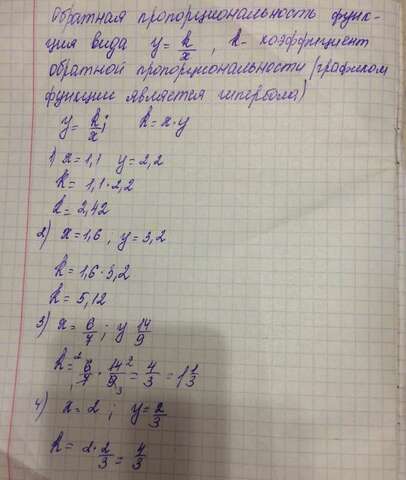 Обратная пропорциональность функ-
ция вида y = k/x , k- коэффициент
обратной пропорциональности (графиком
функции является гипербола)
y = k/x; k = x·y
1) x = 1,1 y = 2,2
k = 1,1·2,2
k = 2,42
2) x = 1,6 , y = 3,2
k = 1,6·3,2
k = 5,12
3) x = 6/7 ; y 14/9
k = 6/7 · 14/9 = 4/3 = 1 1/3
4) x = 2 ; y = 2/3
k = 2·2/3 = 4/3